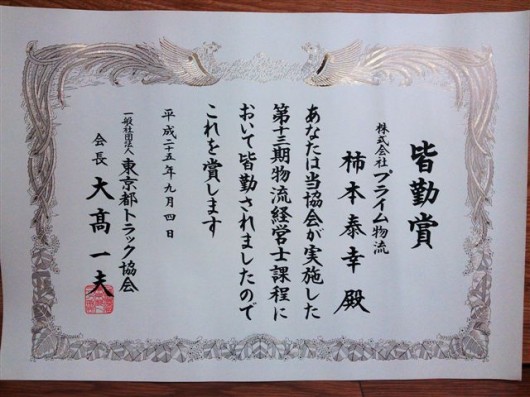 皆勤賞
株式会社プライム物流
柿本泰幸殿
あなたは当協会が実施した
第十三期物流経営士課程に
おいて皆勤されましたので
これを賞します
平成二十五年九月四日
一般社団法人東京都トラック協会
会長大髙一夫